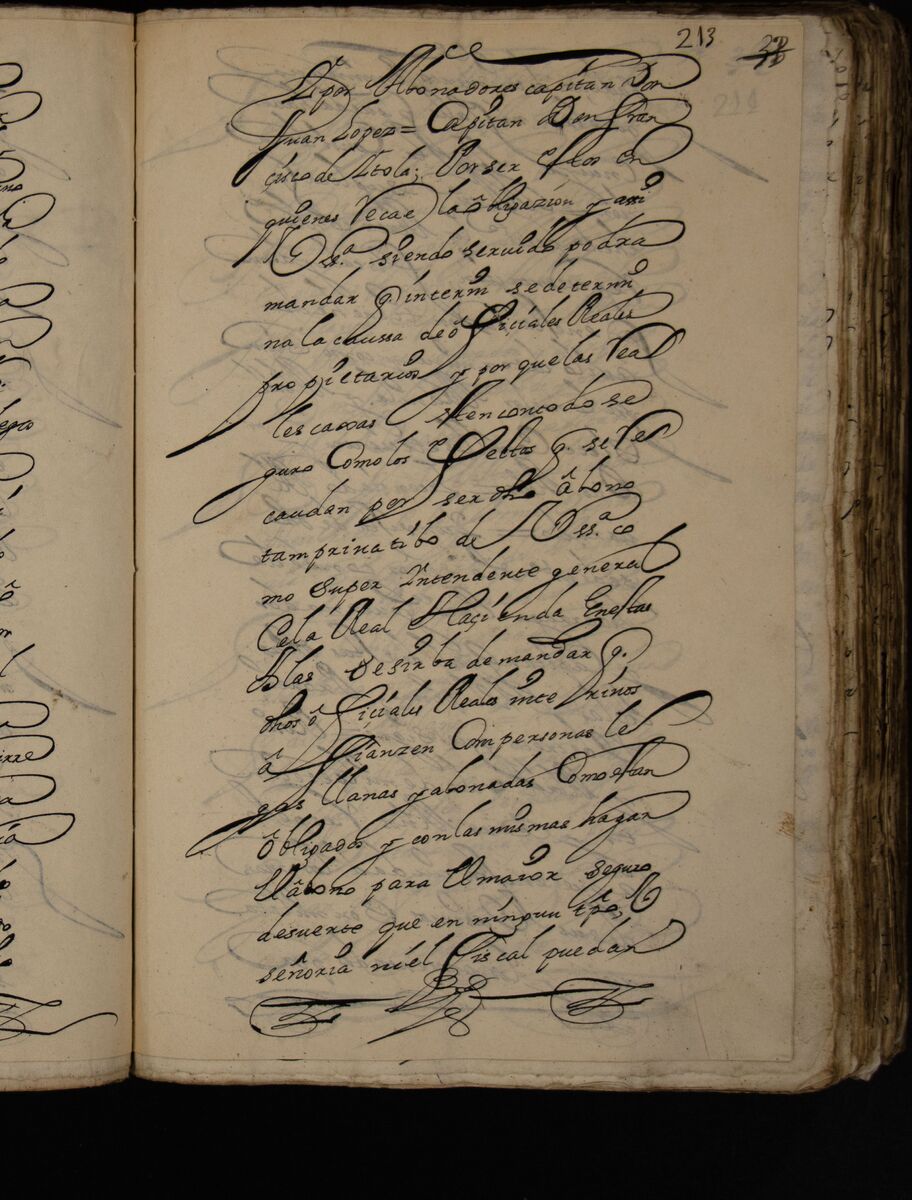 213
Y por Abonadores capitan Don
Juan Lopez = Capitan Don Fran
cisco de Atola; Por ser estos en
quienes Recae la obligazion y assi
V Sª siendo seruido podra
mandar q interin se determi
na la caussa de ofiçiales Reales
propietarios y por que las Rea
les caxas esten con todo se
guro Como los efectos q. se Re
caudan por ser dho abono
tam pribatibo de V Ssª co
mo Super Yntendente general
de la Real Haçienda En estas
Yslas Se sirba de mandar q.
dhos ofiçiales Reales interinos
afianzen Com personas le
gas llanas y abonadas Como estan
obligados y con las mismas hagan
El abono para El maior seguro
de suerte que en ningun tpo, V
señoria ni el Fiscal puedan